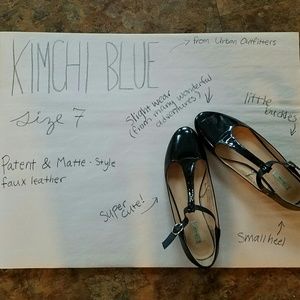 KIMCHI BLUE
from Urban Outfitters
size 7
Slight wear
(from many wonderful
adventures)
little
buckles
Patent & Matte-Style
faux leather
super
cute!
Small heel